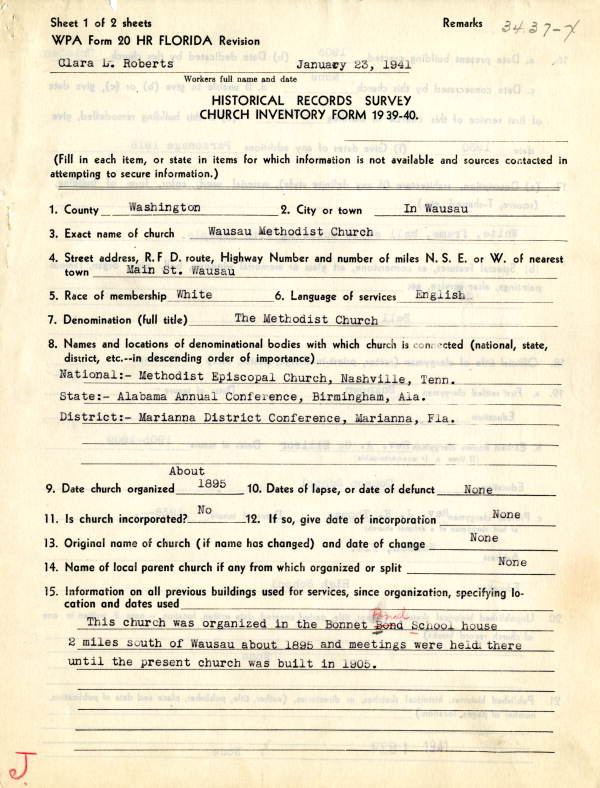 Sheet 1 of 2 sheets Remarks 34.37-7
WPA Form 20 HR FLORIDA Revision
Clara L. Roberts January 23, 1941
Workers full name and date
HISTORICAL RECORDS SURVEY
CHURCH INVENTORY FORM 1939-40.
(Fill in each item, or state in items for which information is not available and sources contacted in
attempting to secure information.)
1. County Washington 2. City or town In Wausau
3. Exact name of church Wausau Methodist Church
4. Street address, R. F. D. route, Highway Number and number of miles N. S. E. or W. of nearest
town Main St. Wausau
5. Race of membership White 6. Language of services English
7. Denomination (full title) The Methodist Church
8. Names and locations of denominational bodies with which church is connected (national, state,
district, etc.--in descending order of importance)
National:- Methodist Episcopal Church, Nashville, Tenn.
State:- Alabama Annual Conference, Birmingham, Ala.
District:- Marianna District Conference, Marianna, Fla.
About
9. Date church organized 1895 10. Dates of lapse, or date of defunct None
11. Is church incorporated? No 12. If so, give date of incorporation None
13. Original name of church (if name has changed) and date of change None
14. Name of local parent church if any from which organized or split None
15. Information on all previous buildings used for services, since organization, specifying lo-
cation and dates used
Pond
This church was organized in the Bonnet Bond School house
2 miles south of Wausau about 1895 and meetings were held there
until the present church was built in 1905.
J